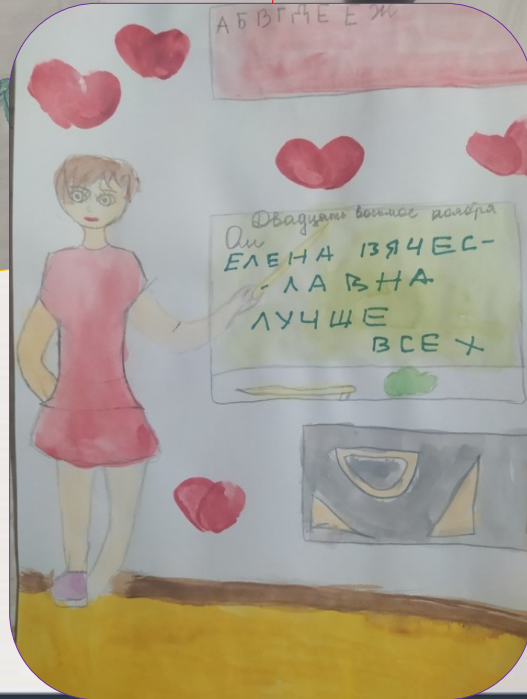 А Б В Г Д Е Ё Ж
Двадцать восьмое ноября
ЕЛЕНА ВЯЧЕС-
-ЛАВНА
ЛУЧШЕ
ВСЕХ